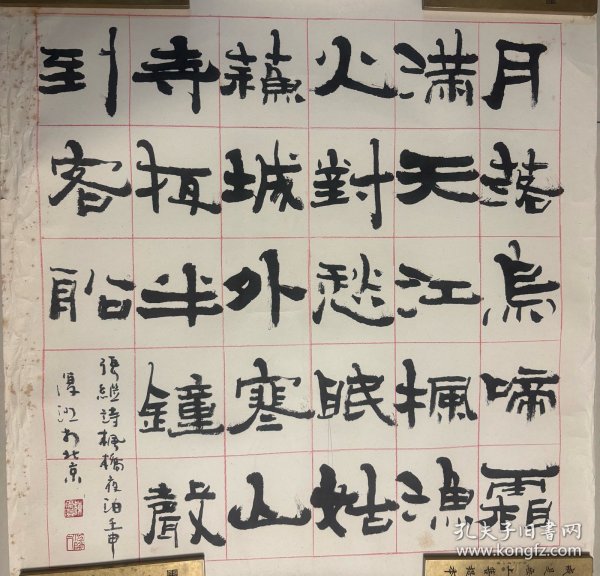 月落烏啼霜
滿天江楓漁
火對愁眠姑
蘓城外寒山
寺夜半鐘聲
到客船
張繼詩楓橋夜泊壬申
北京
孔夫子旧书网
www.kongfz.com